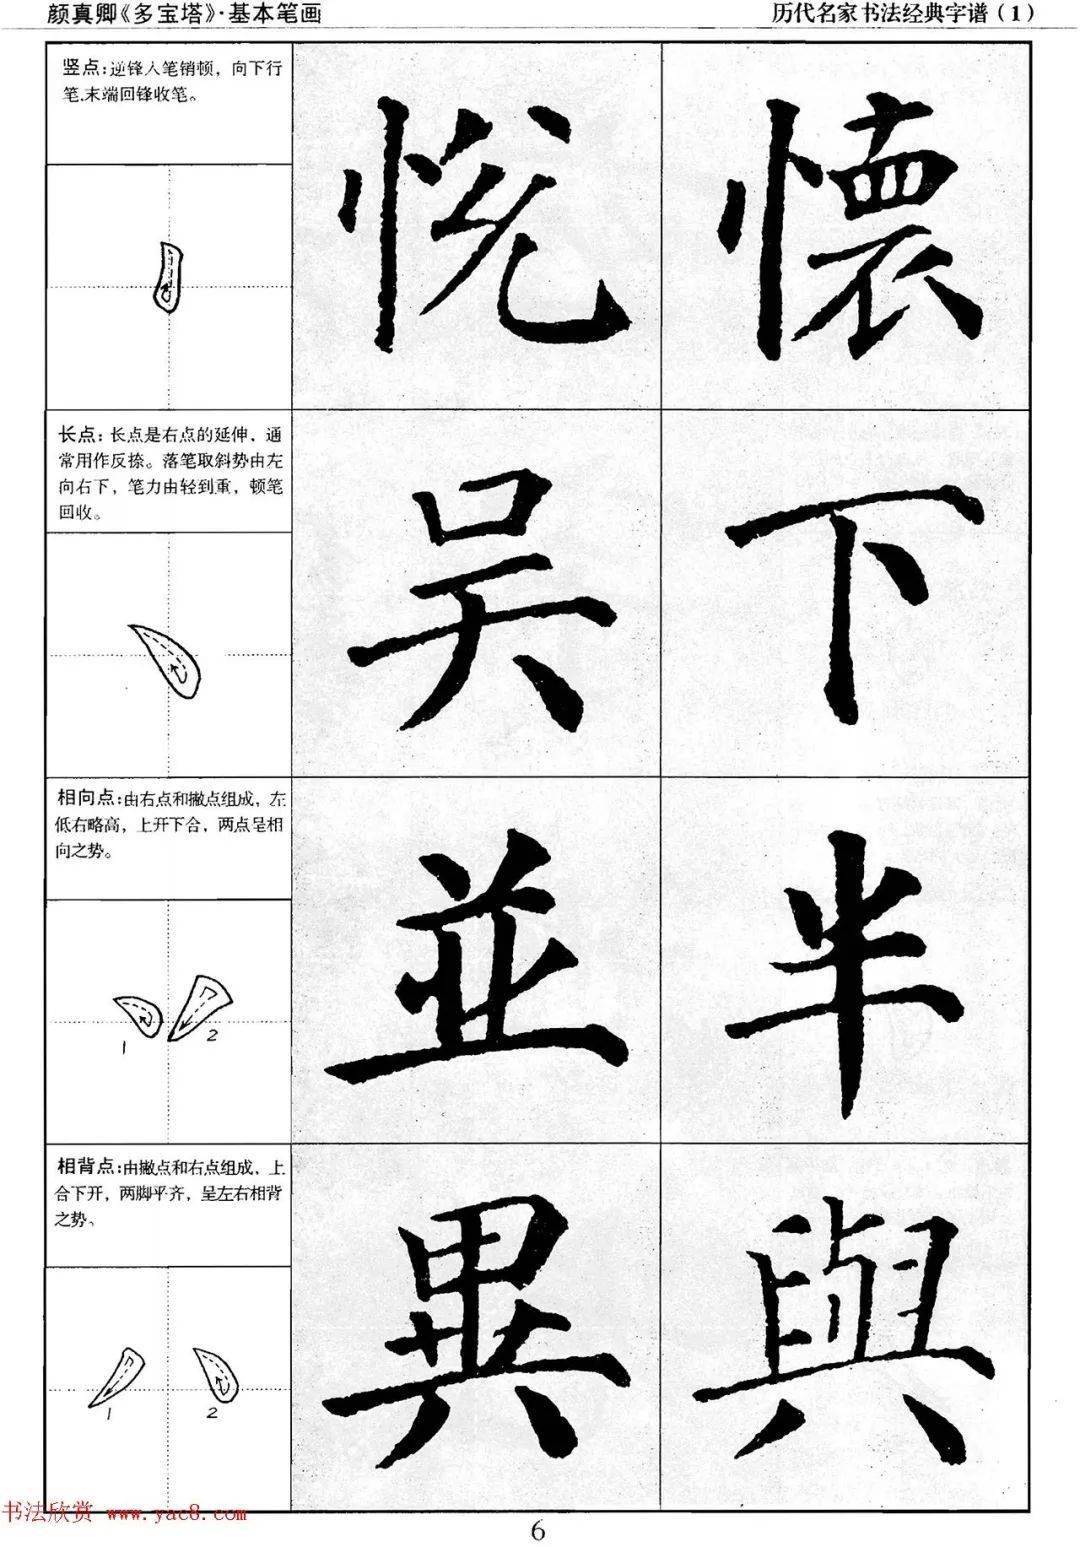 颜真卿《多宝塔》·基本笔画
历代名家书法经典字谱（1）
竖点:逆锋入笔销顿，向下行
笔.末端回锋收笔。
怳 懷
长点：长点是右点的延伸，通
常用作反捺。落笔取斜势由左
向右下，笔力由轻到重，顿笔
回收。
吴 下
相向点:由右点和撇点组成，左
低右略高，上开下合，两点呈相
向之势。
1 2
並 半
相背点:由撇点和右点组成，上
合下开，两脚平齐，呈左右相背
之势、
1 2
異 與
书法欣赏 www.yac8.com
6